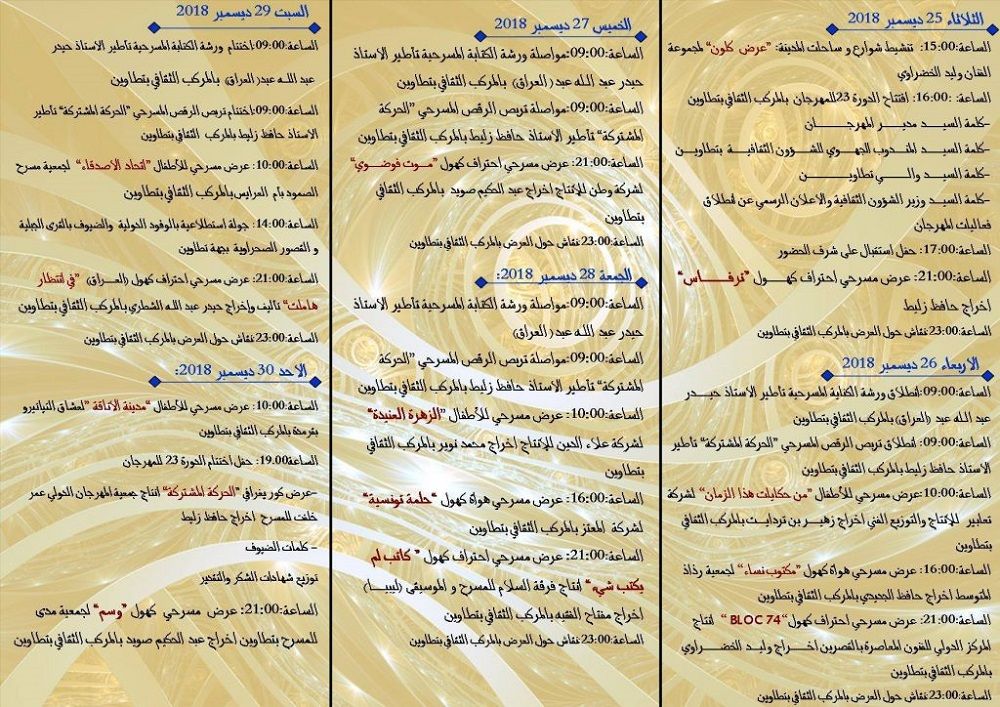 الثلاثاء 25 ديسمبر 2018
الساعة:15:00: تنشيط شوارع و ساحات المدينة: "عرض كلون" لمجموعة
الفنان وليد الخضراوي
الساعة: :16:00: افتتاح الدورة 23للمهرجان بالمركب الثقافي بتطاوين
-كلمة السيد مدير المهرجان
-كلمة السيد المندوب الجهوي للشؤون الثقافية بتطاوين
-كلمة السيد والي تطاوين
-كلمة السيد وزير الشؤون الثقافية والاعلان الرسمي عن انطلاق
فعاليات المهرجان
الساعة:17:00: حفل إستقبال على شرف الحضور
الساعة:21:00: عرض مسرحي احتراف كهول "ترفاس"
اخراج حافظ زليط
الساعة:23:00:نقاش حول العرض بالمركب الثقافي بتطاوين
الاربعاء 26 ديسمبر 2018
الساعة:09:00:انطلاق ورشة الكتابة المسرحية تأطير الاستاذ حيدر
عبد الله عبد (العراق) بالمركب الثقافي بتطاوين
الساعة:09:00: انطلاق تربص الرقص المسرحي "الحركة المشتركة" تأطير
الاستاذ حافظ زليط بالمركب الثقافي بتطاوين
الساعة:10:00:عرض مسرحي للأطفال "من حكايات هذا الزمان" لشركة
تعابير للإنتاج والتوزيع الفني اخراج زهير بن تردايت بالمركب الثقافي
بتطاوين
الساعة:16:00: عرض مسرحي هواة كهول "مكتوب نساء" لجمعية رذاذ
المتوسط اخراج حافظ الجديدي بالمركب الثقافي بتطاوين
الساعة:21:00: عرض مسرحي احتراف كهول "BLOC 74" انتاج
المركز الدولي للفنون المعاصرة بالقصرين اخراج وليد الخضراوي
بالمركب الثقافي بتطاوين
الساعة:23:00:نقاش حول العرض بالمركب الثقافي بتطاوين
الخميس 27 ديسمبر 2018
الساعة:09:00:مواصلة ورشة الكتابة المسرحية تأطير الاستاذ
حيدر عبد الله عبد (العراق) بالمركب الثقافي بتطاوين
الساعة:09:00:مواصلة تربص الرقص المسرحي "الحركة
المشتركة" تأطير الاستاذ حافظ زليط بالمركب الثقافي بتطاوين
الساعة:21:00: عرض مسرحي احتراف كهول "موت فوضوي"
لشركة وطن للإنتاج اخراج عبد الحكيم صويد بالمركب الثقافي
بتطاوين
الساعة:23:00:نقاش حول العرض بالمركب الثقافي بتطاوين
الجمعة 28 ديسمبر 2018:
الساعة:09:00:مواصلة ورشة الكتابة المسرحية تأطير الاستاذ
حيدر عبد الله عبد (العراق)
الساعة:09:00:مواصلة تربص الرقص المسرحي "الحركة
المشتركة" تأطير الاستاذ حافظ زليط بالمركب الثقافي بتطاوين
الساعة:10:00: عرض مسرحي للأطفال "الزهرة العنيدة"
لشركة علاء الدين للإنتاج اخراج محمد نوير بالمركب الثقافي
بتطاوين
الساعة:16:00: عرض مسرحي هواة كهول "حلمة تونسية"
لشركة المعتز بالمركب الثقافي بتطاوين
الساعة:21:00: عرض مسرحي احتراف كهول "كاتب لم
يكتب شيء" إنتاج فرقة السلام للمسرح و الموسيقى (ليبيا)
اخراج مفتاح الفقيه بالمركب الثقافي بتطاوين
الساعة:23:00:نقاش حول العرض بالمركب الثقافي بتطاوين
السبت 29 ديسمبر 2018
الساعة:09:00:اختتام ورشة الكتابة المسرحية تأطير الاستاذ حيدر
عبد الله عبد(العراق) بالمركب الثقافي بتطاوين
الساعة:09:00:اختتام تربص الرقص المسرحي "الحركة المشتركة" تأطير
الاستاذ حافظ زليط بالمركب الثقافي بتطاوين
الساعة:10:00: عرض مسرحي للأطفال "اتحاد الأصدقاء" لجمعية مسرح
الصمود بام العرايس بالمركب الثقافي بتطاوين
الساعة:14:00: جولة استطلاعية بالوفود الدولية والضيوف بالقرى الجبلية
و القصور الصحراوية بجهة تطاوين
الساعة:21:00: عرض مسرحي احتراف كهول (العراق) "في انتظار
هاملت" تأليف وإخراج حيدر عبد الله الشطري بالمركب الثقافي بتطاوين
الساعة:23:00:نقاش حول العرض بالمركب الثقافي بتطاوين
الاحد 30 ديسمبر 2018:
الساعة:10:00: عرض مسرحي للأطفال "مدينة الأناقة" لعشاق التياترو
بقرمدة بالمركب الثقافي بتطاوين
الساعة:19.00: حفل اختتام الدورة 23 للمهرجان
-عرض كوريغرافي "الحركة المشتركة" انتاج جمعية المهرجان الدولي عمر
خلفت للمسرح اخراج حافظ زليط
- كلمات الضيوف
توزيع شهادات الشكر والتقدير
الساعة:21:00: عرض مسرحي كهول "وسم" لجمعية مدى
للمسرح بتطاوين اخراج عبد الحكيم صويد بالمركب الثقافي بتطاوين